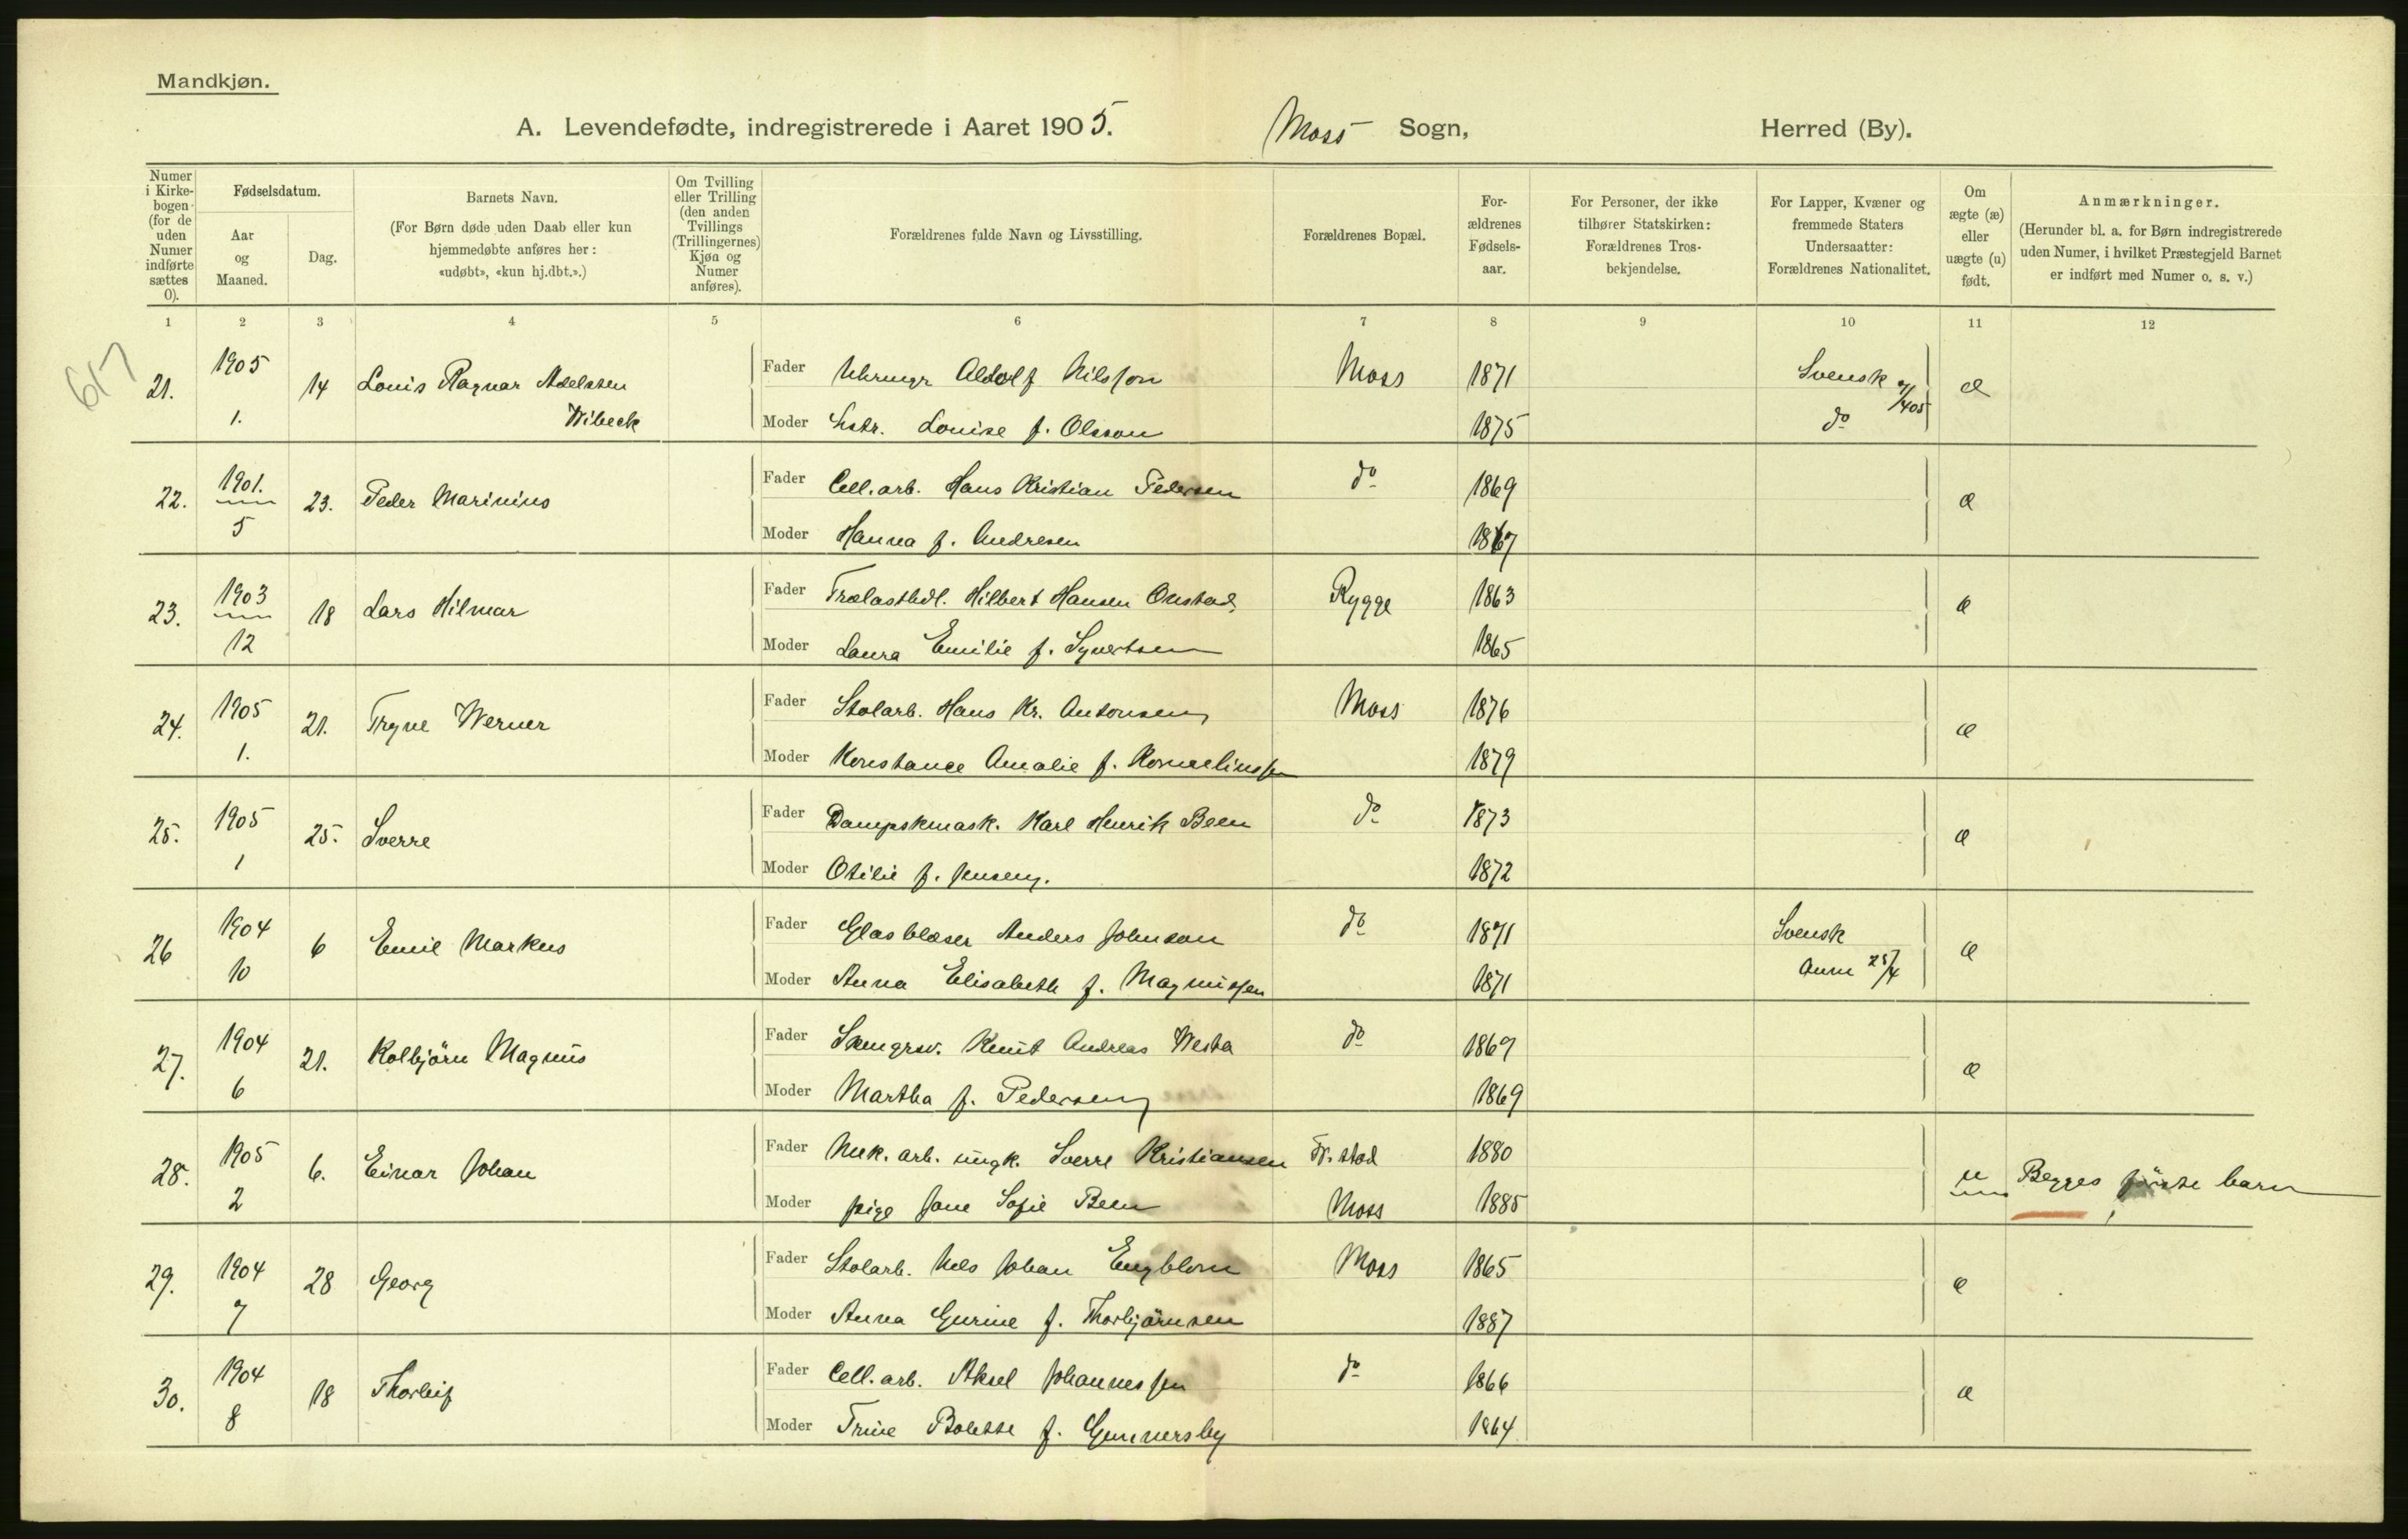 Mandkjøn.
A. Levendefødte, indregistrerede i Aaret 1905. Moss Sogn, Herred (By).
Numer i Kirkebogen (for de uden Numer indførte sættes 0).
Fødselsdatum.
Aar og Maaned.
Dag.
Barnets Navn.
(For Børn døde uden Daab eller kun hjemmedøbte anføres her: «udøbt», «kun hj.dbt.».)
Om Tvilling eller Trilling (den anden Tvillings (Trillingernes) Kjøn og Numer anføres).
Forældrenes fulde Navn og Livsstilling.
Forældrenes Bopæl.
Forældrenes Fødselsaar.
For Personer, der ikke tilhører Statskirken: Forældrenes Trosbekjendelse.
For Lapper, Kvæner og fremmede Staters Undersaatter: Forældrenes Nationalitet.
Om ægte (æ) eller uægte (u) født.
Anmærkninger.
(Herunder bl. a. for Børn indregistrerede uden Numer, i hvilket Præstegjeld Barnet er indført med Numer o. s. v.)
1 2 3 4 5 6 7 8 9 10 11 12
617
21. 1905 14 Louis Ragnar Adelsten Fader Adolf Nilsson Moss 1871 Svensk æ
1. Wibeck Moder Hstr. Louise f. Olsson 1875 do
22. 1901. 23. Peder Marinius Fader Cell. arb. Hans Kristian Pedersen do 1869 æ
5 Moder Hanna f. Andresen 1867
23. 1903 18 Lars Hilmar Fader Trælasthdl. Hilbert Hansen Onstad Rygge 1863 æ
12 Moder Laura Emilie f. Syvertsen 1865
24. 1905 21. Trygve Werner Fader Stolarb. Hans Kr. Antonsen Moss 1876 æ
1. Moder Konstance Amalie f. Korneliussen 1879
25. 1905 25. Sverre Fader Dampskmask. Karl Henrik Been do 1873 æ
1 Moder Otilie f. Jensen. 1872
26 1904 6 Emil Markus Fader Glasblæser Anders Johnson do 1871 Svensk æ
10 Moder Anna Elisabeth f. Magnussen 1871 Anm 25/4
27. 1904 21. Kolbjörn Magnus Fader Knut Andreas Westa do 1869 æ
6 Moder Martha f. Pedersen 1869
28. 1905 6. Einar Johan Fader Mek. arb. ungk. Sverre Kristiansen Fr.stad 1880 u Begges første barn
2 Moder pige Jane Sofie Been Moss 1885
29. 1904 28 Georg Fader Stolarb. Nils Johan Engblom Moss 1865 æ
7 Moder Anna Gurine f. Thorbjørnsen 1887
30. 1904 18 Thorleif Fader Cell. arb. Aksel Johannessen do 1866 æ
8 Moder Trine Bolette f. Gunnersby 1864